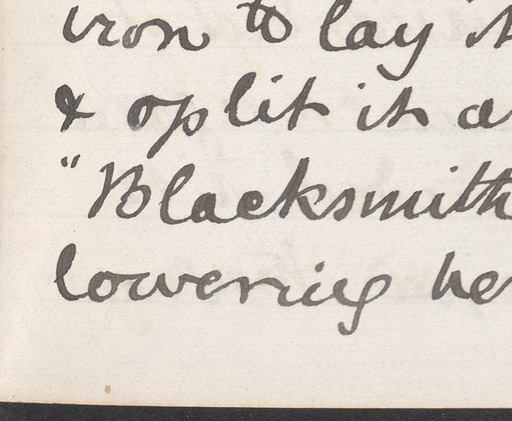 iron to lay it
& split it a
"Blacksmith
lowering he